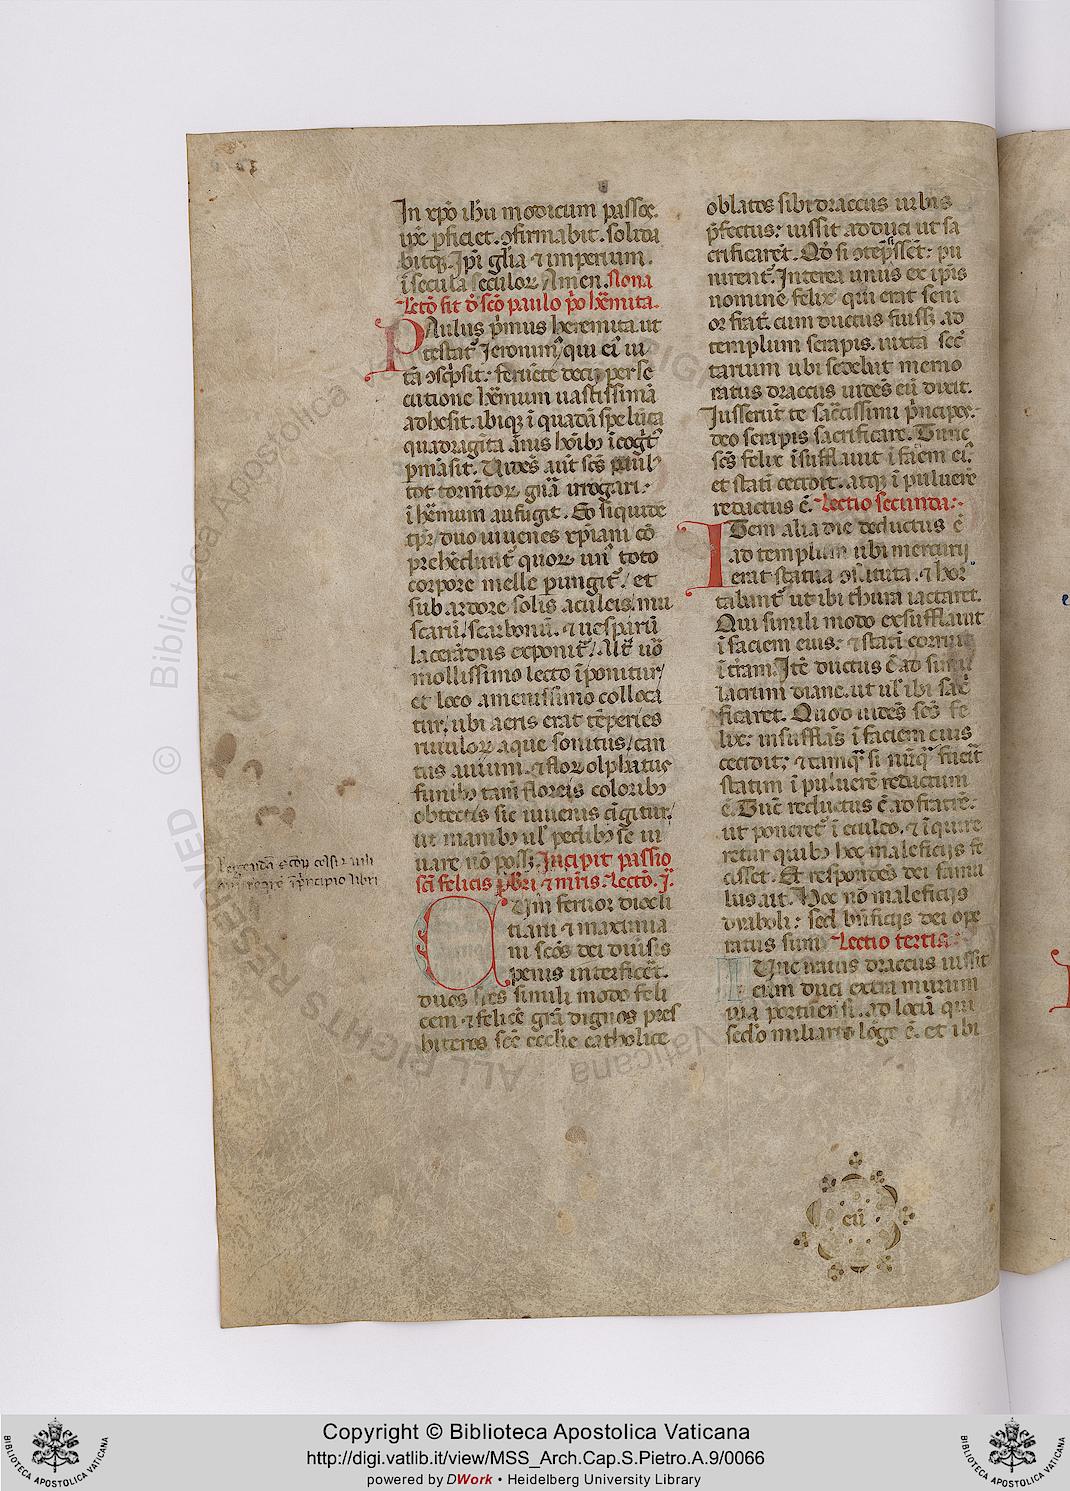 In xp̄o ih̄u modicum passos.
ip̄e p̄ficiet. ꝯfirmabit. solida
bitqꝫ. Ip̄i gl̄ia ⁊ imperium.
ī secula seculoꝝ Amen. Nona
Lectō fit d̄ scō paulo p̄o hēmita.
PAulus p̄mus heremita. ut
testat᷑ Jeronim᷒ qui ei᷒ ui
tā ꝯsc̄psit: feruēte decij perse
cutione hēmum uastissimā
adhesit. ibiqꝫ ī quadā spelūca
quadragīta ānis hōibꝫ īcogt᷒
pmāsit. Uidēs aūt scs̄ paul᷒
tot tormētoꝝ gn̄a irrogari.
ī hēmum aufugit. Eo siquidē
tp̄r duo iuuenes xp̄iani cō
prehēdunt᷑ quoꝝ un᷒ toto
corpore melle pungit᷑/ et
sub ardore solis aculeis mu
scarū/ scarbonū. ⁊ uesparū
lacerādus exponit᷑/ Alt̄ uō
mollissimo lecto īponitur/
et loco amenissimo colloca
tur/ ubi aeris erat tēperies
riuuloꝝ aque sonitus/ can
tus auium. ⁊ floꝝ olphatus
funibꝫ tam̄ floreis coloribꝫ
obtectis sic iuuenis cīgitur/
ut manibꝫ ul̄ pedibꝫ se iu
uare nō possꝫ. Incipit passio
sc̄i felicis p̄br̄i ⁊ mr̄is. Lectō. j.
CUm feruor diocli
tiani ⁊ maximia
ni scōs dei diuīsis
penis interficēt.
duos frēs simili modo feli
cem ⁊ felicē gr̄a dignos pres
biteros scē ecclīe catholice
oblatos sibi draccus urbis
p̄fectus: iussit ad duci ut sa
crificarēt. Qd̄ si ꝯtēpsissēt: pu
nirent᷑. Interea unus ex ip̄is
nomine felix qui erat seni
or frat̄. cum ductus fuissꝫ ad
templum serapis. iuxta sec̄
tarium ubi sedebat memo
ratus draccus uidēs eū dixit.
Iusserūt te sac̄tissimi p̄ncipes.
deo serapis sacrificare. Tunc
scs̄ felix īsufflauit ī faciem ei᷒
et stati cecidit. atqꝫ ī puluerē
redactus ē. Lectio secunda:-
ITem alia die deductus ē
ad templum ubi mercurij
erat statua ꝯstituta. ⁊ hor
tabant᷑ ut ibi thura iactaret.
Qui simili modo exsufflauit
ī faciem eius: ⁊ statī corruit
ī t̄ram. Itē ductus ē ad simu
lacrum diane. ut ul̄ ibi sac̄
ficaret. Quod uidēs scs̄ fe
lix: insufflās ī faciem eius
cecidit: ⁊ tamqͣ si nūqͣ fuerit
statim ī puluerē redactum
ē. Tūc reductus ē ad fratrē.
ut poneret᷑ ī eculeo. ⁊ īquire
retur quibꝫ hec maleficijs fe
cisset. Et respondēs dei famu
lus ait. Hoc nō maleficijs
dyaboli: sed b̄nficijs dei ope
ratus sum. Lectio tertia:
TUnc iratus draccus iussit
eum duci extra murum
uia portuensi. ad locū qui
sedo miliario lōge ē. et ibi
cū
Copyright © Biblioteca Apostolica Vaticana
http://digi.vatlib.it/view/MSS_Arch.Cap.S.Pietro.A.9/0066
powered by DWork • Heidelberg University Library
BIBLIOTECA APOSTOLICA VATICANA
BIBLIOTECA APOSTOLICA VATICANA